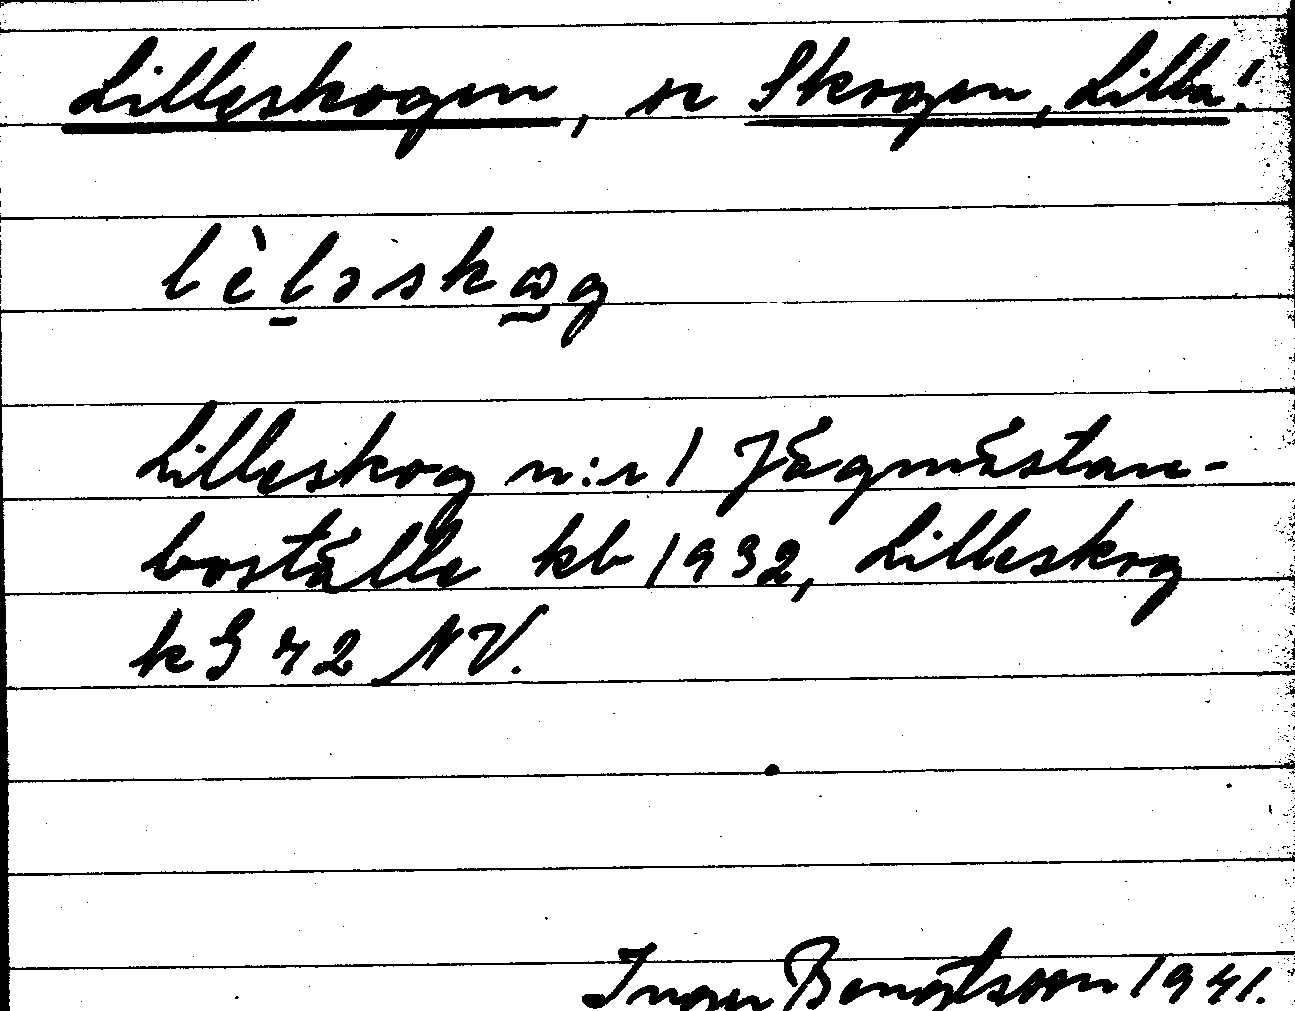 Lilleskogen, se Skogen, Lilla!
lèl̠əskω̰g
Lilleskog n:r 1 Jägmästare-
boställe kb 1932, Lilleskog
k G 42 NV.
Inger Bengtsson 1941.